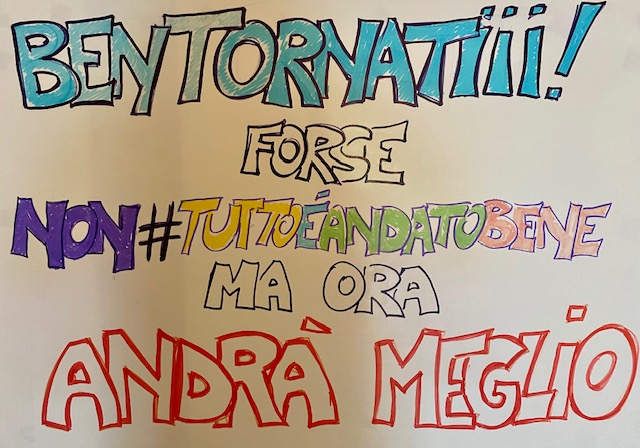 BENTORNATIIII!
FORSE
NON #TUTTOÉANDATOBENE
MA ORA
ANDRÀ MEGLIO